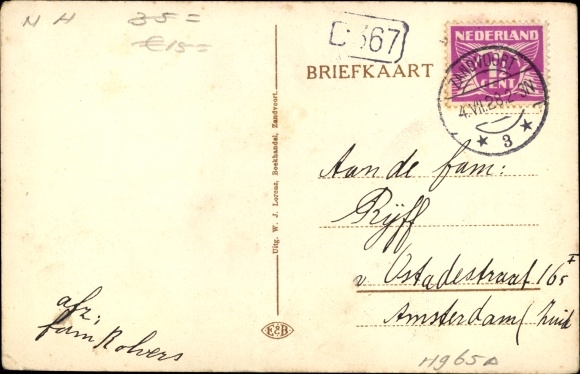 NH 35=
€15=
C 367
BRIEFKAART
NEDERLAND
1½
CENT
ZANDVOORT
4.VII.28.2-3N
3
Aan de fam:
Rijff
v Ostadestraat 165 I
Amsterdam (Zuid
afz:
fam Rolvers
Uitg. W. J. Lorenz, Boekhandel, Zandvoort.
E&B
Hg65A